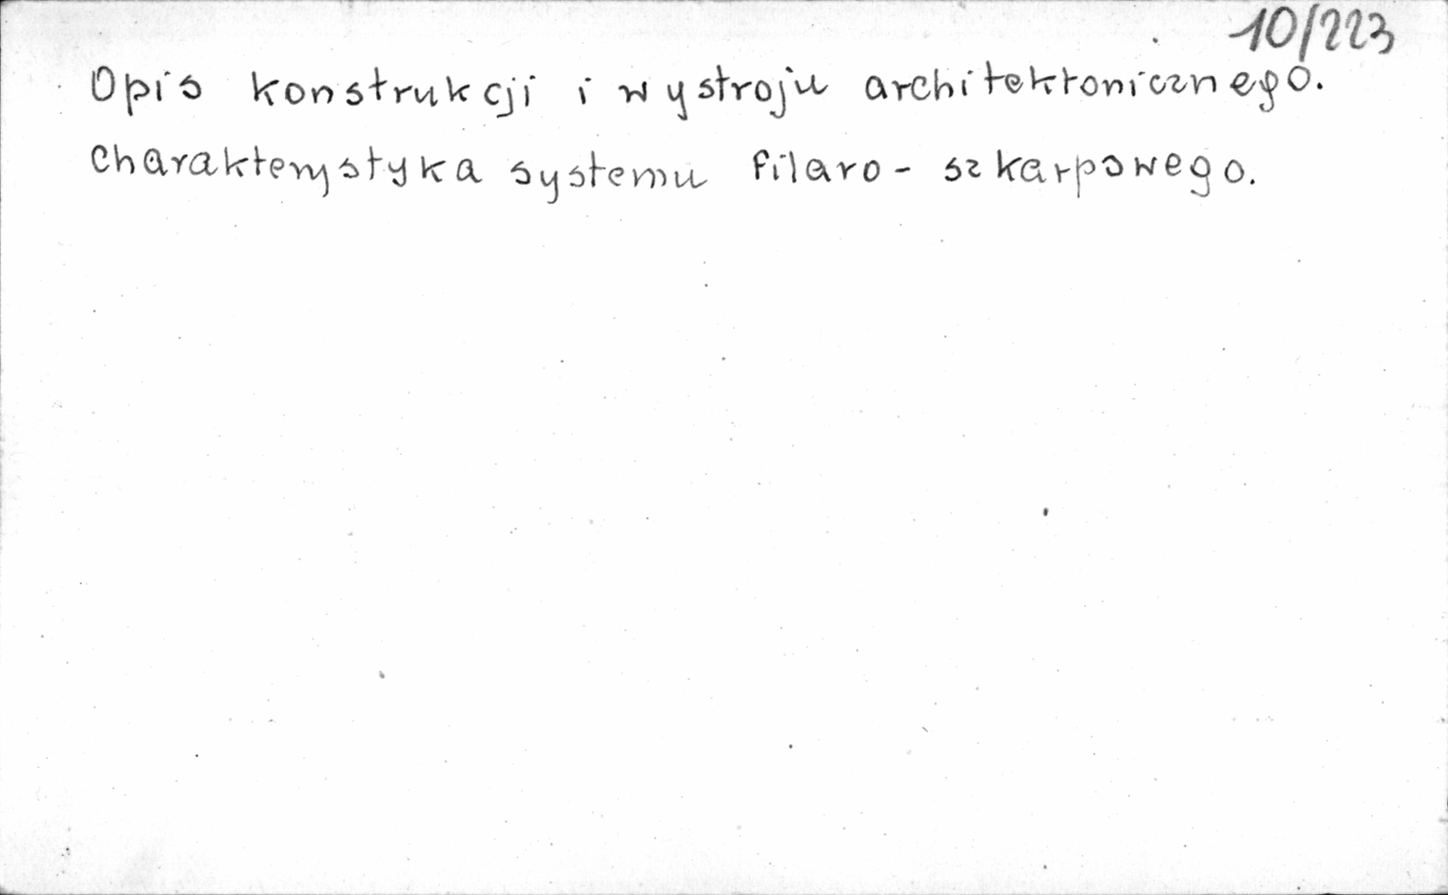 10/223
Opis konstrukcji i wystroju architektonicznego.
Charakterystyka systemu filaro-szkarpowego.